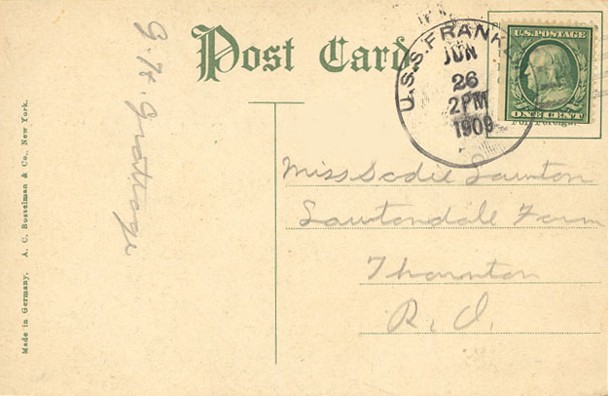 Post Card.
U.S.S. FRANK
JUN
26
2PM
1909
U.S. POSTAGE
ONE CENT
Miss Sadie Lawton
Lawtondale Farm
Thornton
R. I.
G. H.
Made in Germany. A. C. Bosselman & Co., New York.